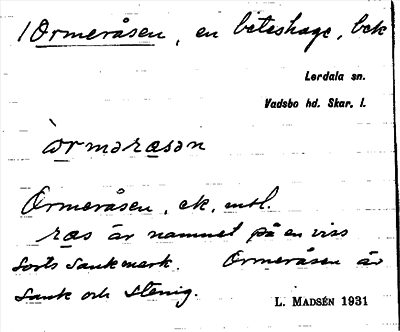 1 Ormeråsen, en beteshage, bek
Lerdala sn.
Vadsbo hd. Skar. l.
òrməræsən
Ormeråsen, ek. mtl.
ræs är namnet på en viss
sorts sankmark. Ormeråsen är
sank och stenig.
L. MADSÉN 1931